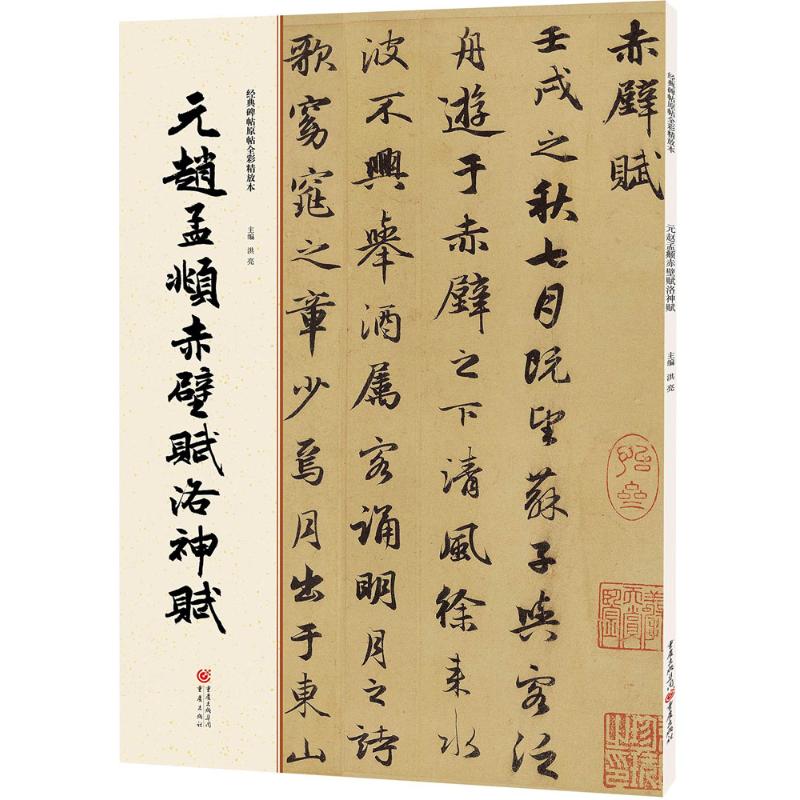 赤壁賦
壬戌之秋七月既望蘇子與客泛
舟遊于赤壁之下清風徐来水
波不興舉酒属客誦明月之詩
歌窈窕之章少焉月出于東山
经典碑帖原帖全彩精放本
主编 洪亮
元趙孟頫赤壁賦洛神賦
重庆出版集团
重庆出版社
经典碑帖原帖全彩精放本
元赵孟頫赤壁赋洛神赋
主编 洪亮
重庆出版集团
重庆出版社